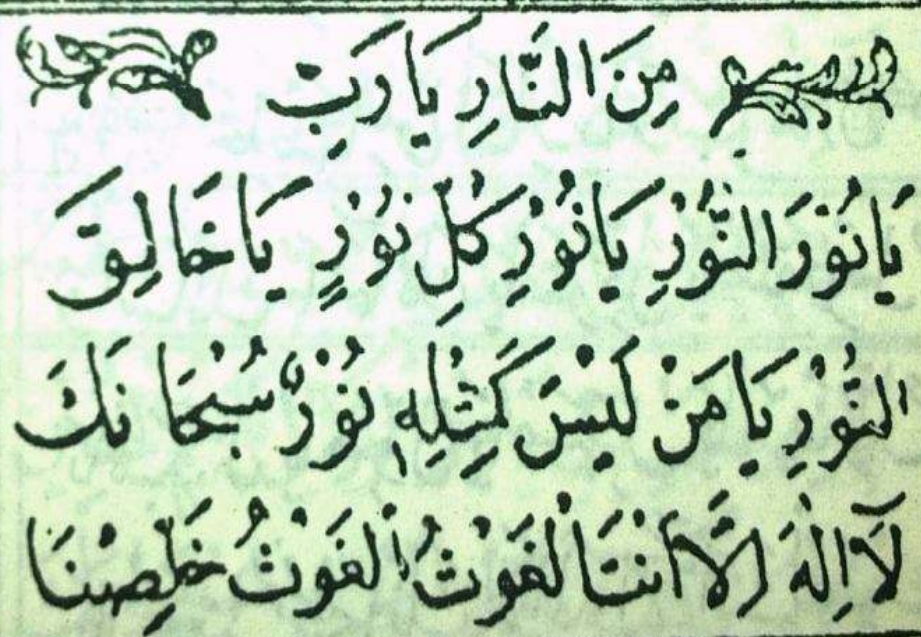 مِنَ النَّارِ يَا رَبِّ
يَا نُوْرَ النُّوْرِ يَا نُوْرِ كُلِّ نُوْرٍ يَا خَالِقَ
النُّوْرِ يَا مَنْ لَيْسَ كَمِثْلِهِ نُوْرٌ سُبْحَانَكَ
لَآ اِلٰهَ اِلَّا اَنْتَ الْغَوْثُ الْغَوْثُ خَلِّصْنَا